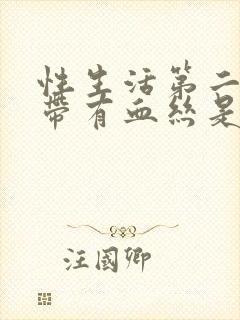 性生活第二
带有血丝是
汪國卿